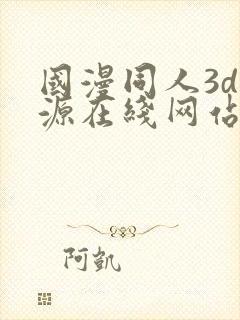 國漫同人3d
源在綫网佔
阿凱